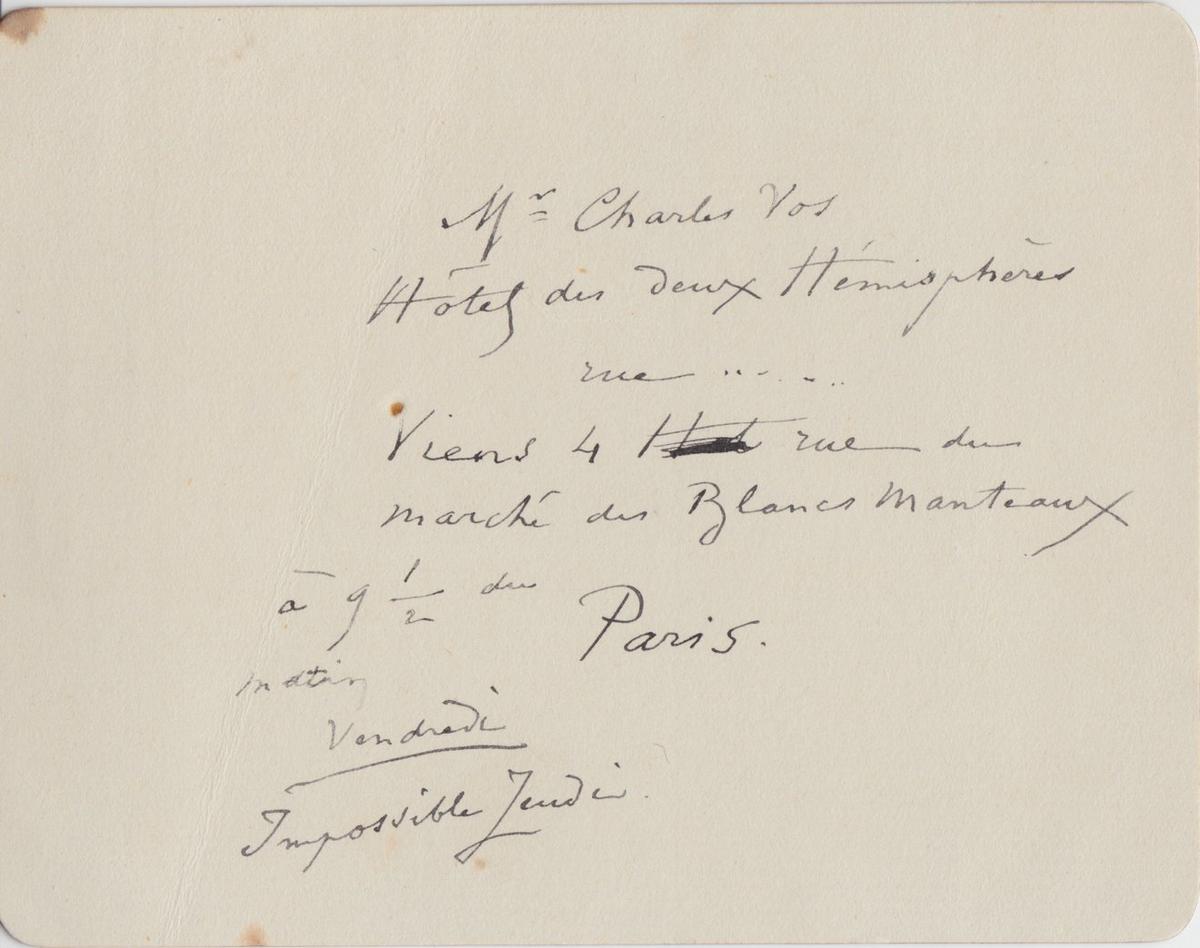 Mr Charles Vos
Hôtel des deux Hémisphères
rue .. . . ...
Viens 4 rue du
marché des Blancs Manteaux
à 9 1/2 du
Paris.
matin
Vendredi
Impossible Jeudi.